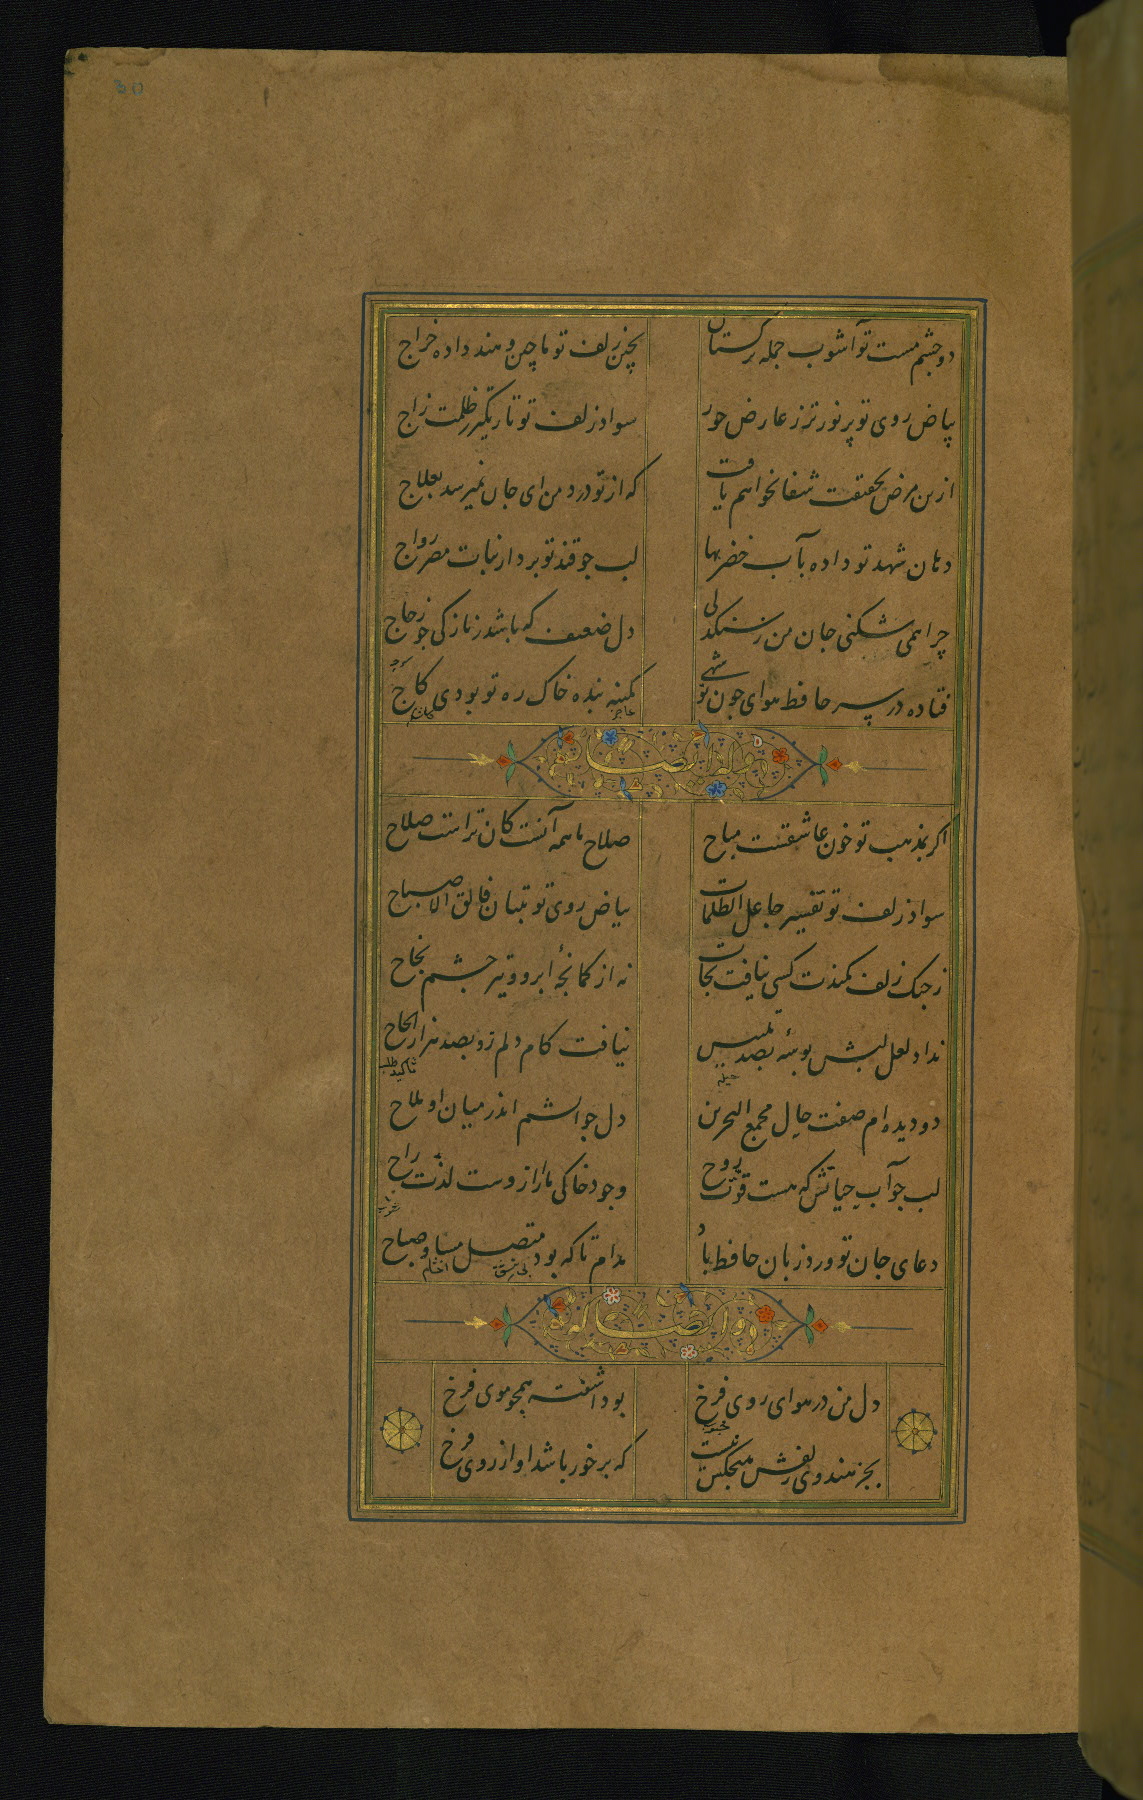 30
دو چشم مست تو آشوب جمله ترکستان بچین زلف تو ماچین و هند داده خراج
بیاض روی تو پر نور تر ز عارض حور سواد زلف تو تاریکتر ز ظلمت زاج
ازین مرض بحقیقت شفا نخواهم یافت که از تو درد من ای جان نمیرسد بعلاج
دهان شهد تو داده بآب خضر بها لب چو قند تو برد از نبات مصر رواج
چرا همی شکنی جان من ز سنگدلی دل ضعیف که باشد ز نازکی چو زجاج
فتاده در سر حافظ هوای چون تو شهی کمینه بنده خاک ره تو بودی کاج
وله ایضا
اگر بمذهب تو خون عاشقست مباح صلاح ما همه آنست کان تراست صلاح
سواد زلف تو تفسیر جاعل الظلمات بیاض روی تو تبیان فالق الاصباح
ز چنگ زلف کمندت کسی نیافت نجات نه از کمانچهٔ ابرو و تیر چشم نجاح
نداد لعل لبش بوسهٔ بصد تلبیس نیافت کام دلم زو بصد هزار الحاح
حیله
دو دیده‌ام صفت حال مجمع البحرین دل چو آشم اندر میان او ملاح
لب چو آب حیاتش که هست قوت روح وجود خاکی ما را ازوست لذت راح
دعای جان تو ورد زبان حافظ باد مدام تا که بود متصل مسا و صباح
وله ایضا
دل من در هوای روی فرخ بود آشفته همچو موی فرخ
بجز هندوی زلفش هیچکس نیست که برخور باشد او از روی فرخ